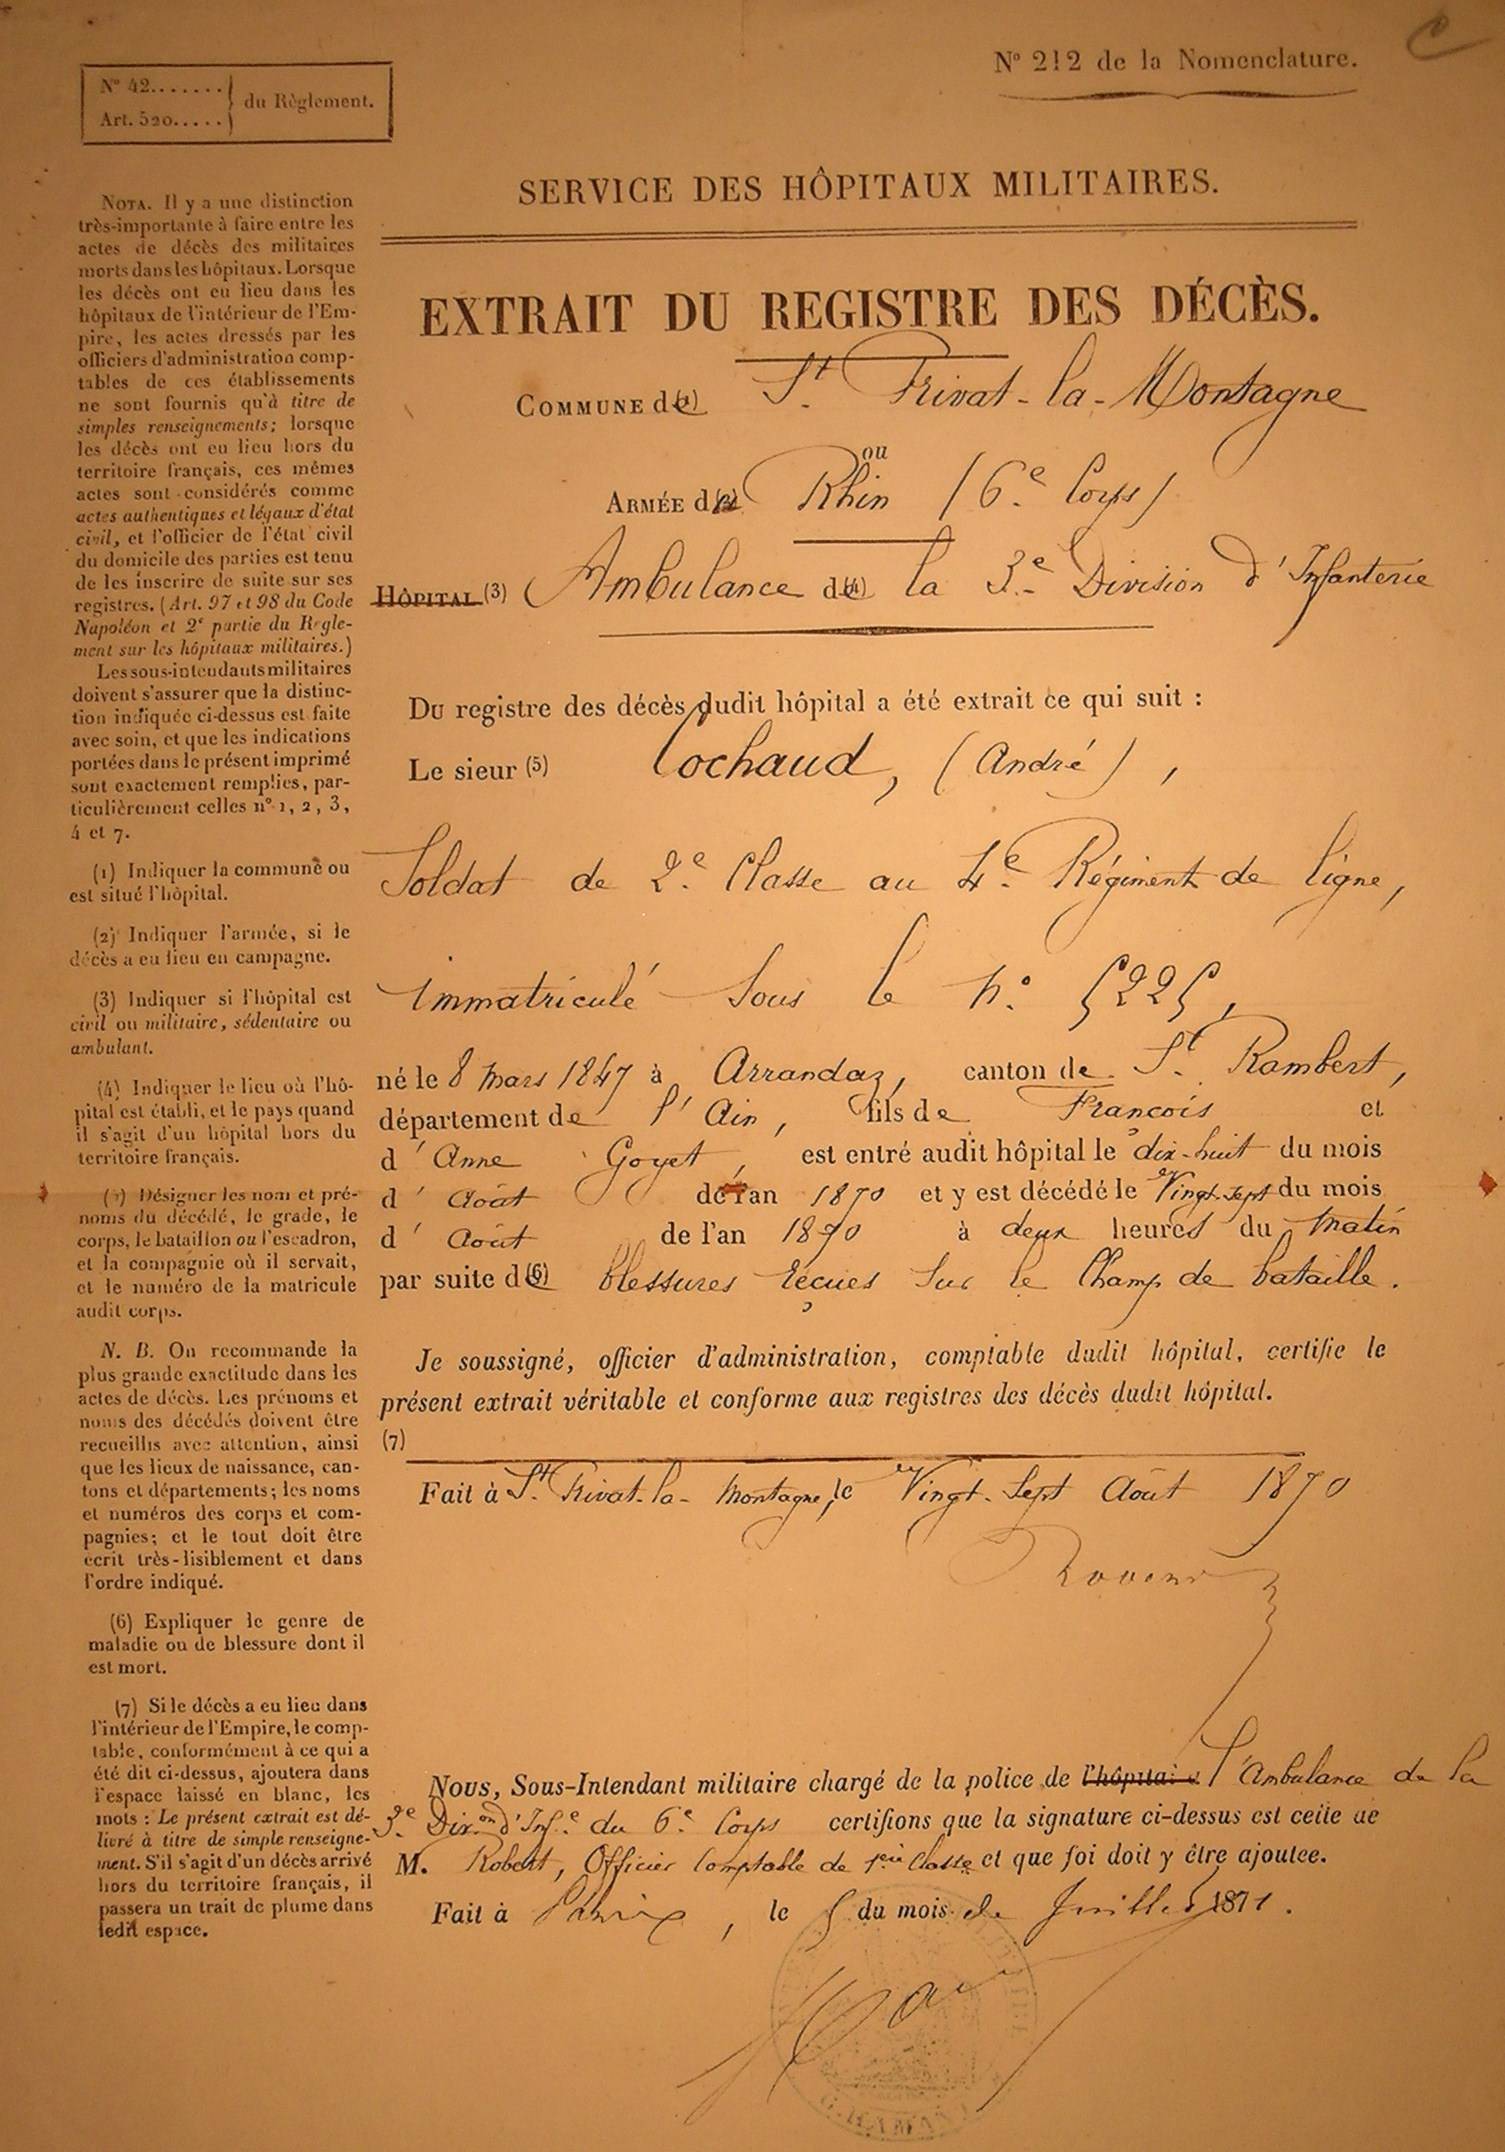 N° 42.......
Art. 520.....
du Règlement.
N° 212 de la Nomenclature.
C
SERVICE DES HÔPITAUX MILITAIRES.
EXTRAIT DU REGISTRE DES DÉCÈS.
COMMUNE d(1) St. Privat-la-Montagne
ou
ARMÉE d(2) Rhin (6e. Corps)
HÔPITAL (3) Ambulance de(4) la 3e. Division d'Infanterie
Du registre des décès dudit hôpital a été extrait ce qui suit :
Le sieur (5) Cochaud, (André),
Soldat de 2e. Classe au 4e. Régiment de ligne,
immatriculé sous le n°. 5225,
né le 8 mars 1847 à Arrandaz, canton de St. Rambert,
département de l'Ain, fils de François et
d'Anne Goyet, est entré audit hôpital le dix-huit du mois
d'Août de l'an 1870 et y est décédé le Vingt-sept du mois
d'Août de l'an 1870 à deux heures du matin
par suite de(6) blessures reçues sur le Champ de bataille.
Je soussigné, officier d'administration, comptable dudit hôpital, certifie le
présent extrait véritable et conforme aux registres des décès dudit hôpital.
(7)
Fait à St. Privat-la-Montagne, le Vingt-Sept Août 1870
Nous, Sous-Intendant militaire chargé de la police de l'hôpital l'Ambulance de la
3e. Dixon d'Infe. du 6e. Corps certifions que la signature ci-dessus est celle de
M. Robert, Officier Comptable de 1ère Classe et que foi doit y être ajoutée.
Fait à Paris, le 5 du mois de Juillet 1871.
NOTA. Il y a une distinction
très-importante à faire entre les
actes de décès des militaires
morts dans les hôpitaux. Lorsque
les décès ont eu lieu dans les
hôpitaux de l'intérieur de l'Em-
pire, les actes dressés par les
officiers d'administration comp-
tables de ces établissements
ne sont fournis qu'à titre de
simples renseignements; lorsque
les décès ont eu lieu hors du
territoire français, ces mêmes
actes sont considérés comme
actes authentiques et légaux d'état
civil, et l'officier de l'état civil
du domicile des parties est tenu
de les inscrire de suite sur ses
registres. (Art. 97 et 98 du Code
Napoléon et 2e partie du Règle-
ment sur les hôpitaux militaires.)
Les sous-intendants militaires
doivent s'assurer que la distinc-
tion indiquée ci-dessus est faite
avec soin, et que les indications
portées dans le présent imprimé
sont exactement remplies, par-
ticulièrement celles nos 1, 2, 3,
4 et 7.
(1) Indiquer la commune ou
est situé l'hôpital.
(2) Indiquer l'armée, si le
décès a eu lieu en campagne.
(3) Indiquer si l'hôpital est
civil ou militaire, sédentaire ou
ambulant.
(4) Indiquer le lieu où l'hô-
pital est établi, et le pays quand
il s'agit d'un hôpital hors du
territoire français.
(5) Désigner les nom et pré-
noms du décédé, le grade, le
corps, le bataillon ou l'escadron,
et la compagnie où il servait,
et le numéro de la matricule
audit corps.
N. B. On recommande la
plus grande exactitude dans les
actes de décès. Les prénoms et
noms des décédés doivent être
recueillis avec attention, ainsi
que les lieux de naissance, can-
tons et départements; les noms
et numéros des corps et com-
pagnies; et le tout doit être
écrit très-lisiblement et dans
l'ordre indiqué.
(6) Expliquer le genre de
maladie ou de blessure dont il
est mort.
(7) Si le décès a eu lieu dans
l'intérieur de l'Empire, le comp-
table, conformément à ce qui a
été dit ci-dessus, ajoutera dans
l'espace laissé en blanc, les
mots : Le présent extrait est dé-
livré à titre de simple renseigne-
ment. S'il s'agit d'un décès arrivé
hors du territoire français, il
passera un trait de plume dans
ledit espace.